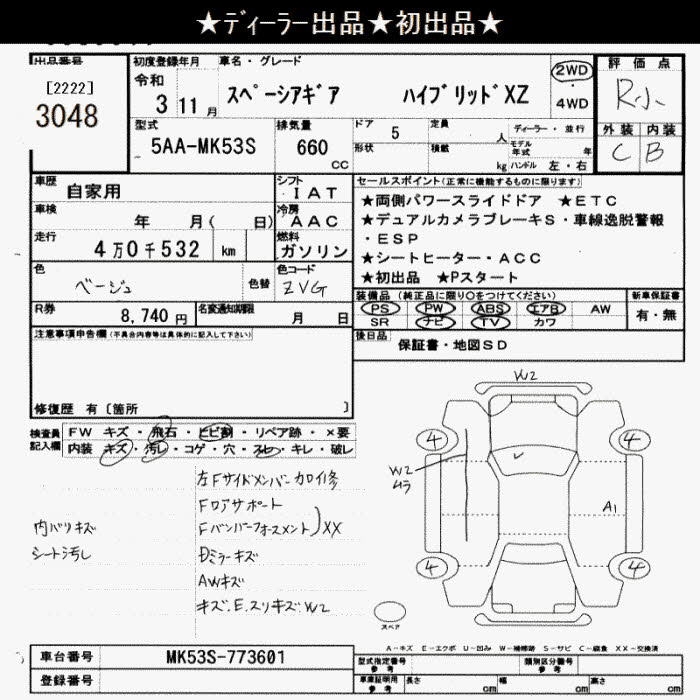 ★ディーラー出品★初出品★
出品番号
[2222]
3048
初度登録年月
令和
3 11 月
車名・グレード
スペーシアギア ハイブリッドXZ
2WD
・
4WD
評価点
R小
外装 内装
C B
型式
5AA-MK53S
排気量
660
CC
ドア 5
形状
定員 人
積載 kg
ディーラー・並行
モデル年式 年
ハンドル 左・右
車歴 自家用
シフト IAT
車検 年 月( 日)
冷房 AAC
走行 4万0千532 km
燃料 ガソリン
色 ベージュ
色替
色コード ZVG
R券 8,740円
名変通知期限 月 日
セールスポイント(正常に機能するものに限ります)
★両側パワースライドドア ★ETC
★デュアルカメラブレーキS・車線逸脱警報
・ESP
★シートヒーター・ACC
★初出品 ★Pスタート
装備品 (純正品に限り○をつけてください)
PS PW ABS エアB AW
SR ナビ TV カワ
新車保証書
有・無
後日品 保証書・地図SD
注意事項申告欄(不具合内容等は具体的に記入して下さい)
修復歴 有〔箇所 〕
検査員記入欄
FW キズ・飛石・ヒビ割・リペア跡・×要
内装 キズ・汚レ・コゲ・穴・スレ・キレ・破レ
内バリキズ
シート汚し
左Fサイドメンバーカロイ修
Fロアサポート
Fバンパーフォースメント)XX
Dミラーキズ
AWキズ
キズ.E.スリキズW2
W2
4 4
W2
ムラ
A1
4 4
スペア
A-キズ E-エクボ U-凹み W-補修跡 S-サビ C-腐食 XX-交換済
車台番号 MK53S-773601
登録番号
型式指定番号
参考
類別区分番号
参考
車庫証明用
参考
長さ cm
幅 cm
高さ cm